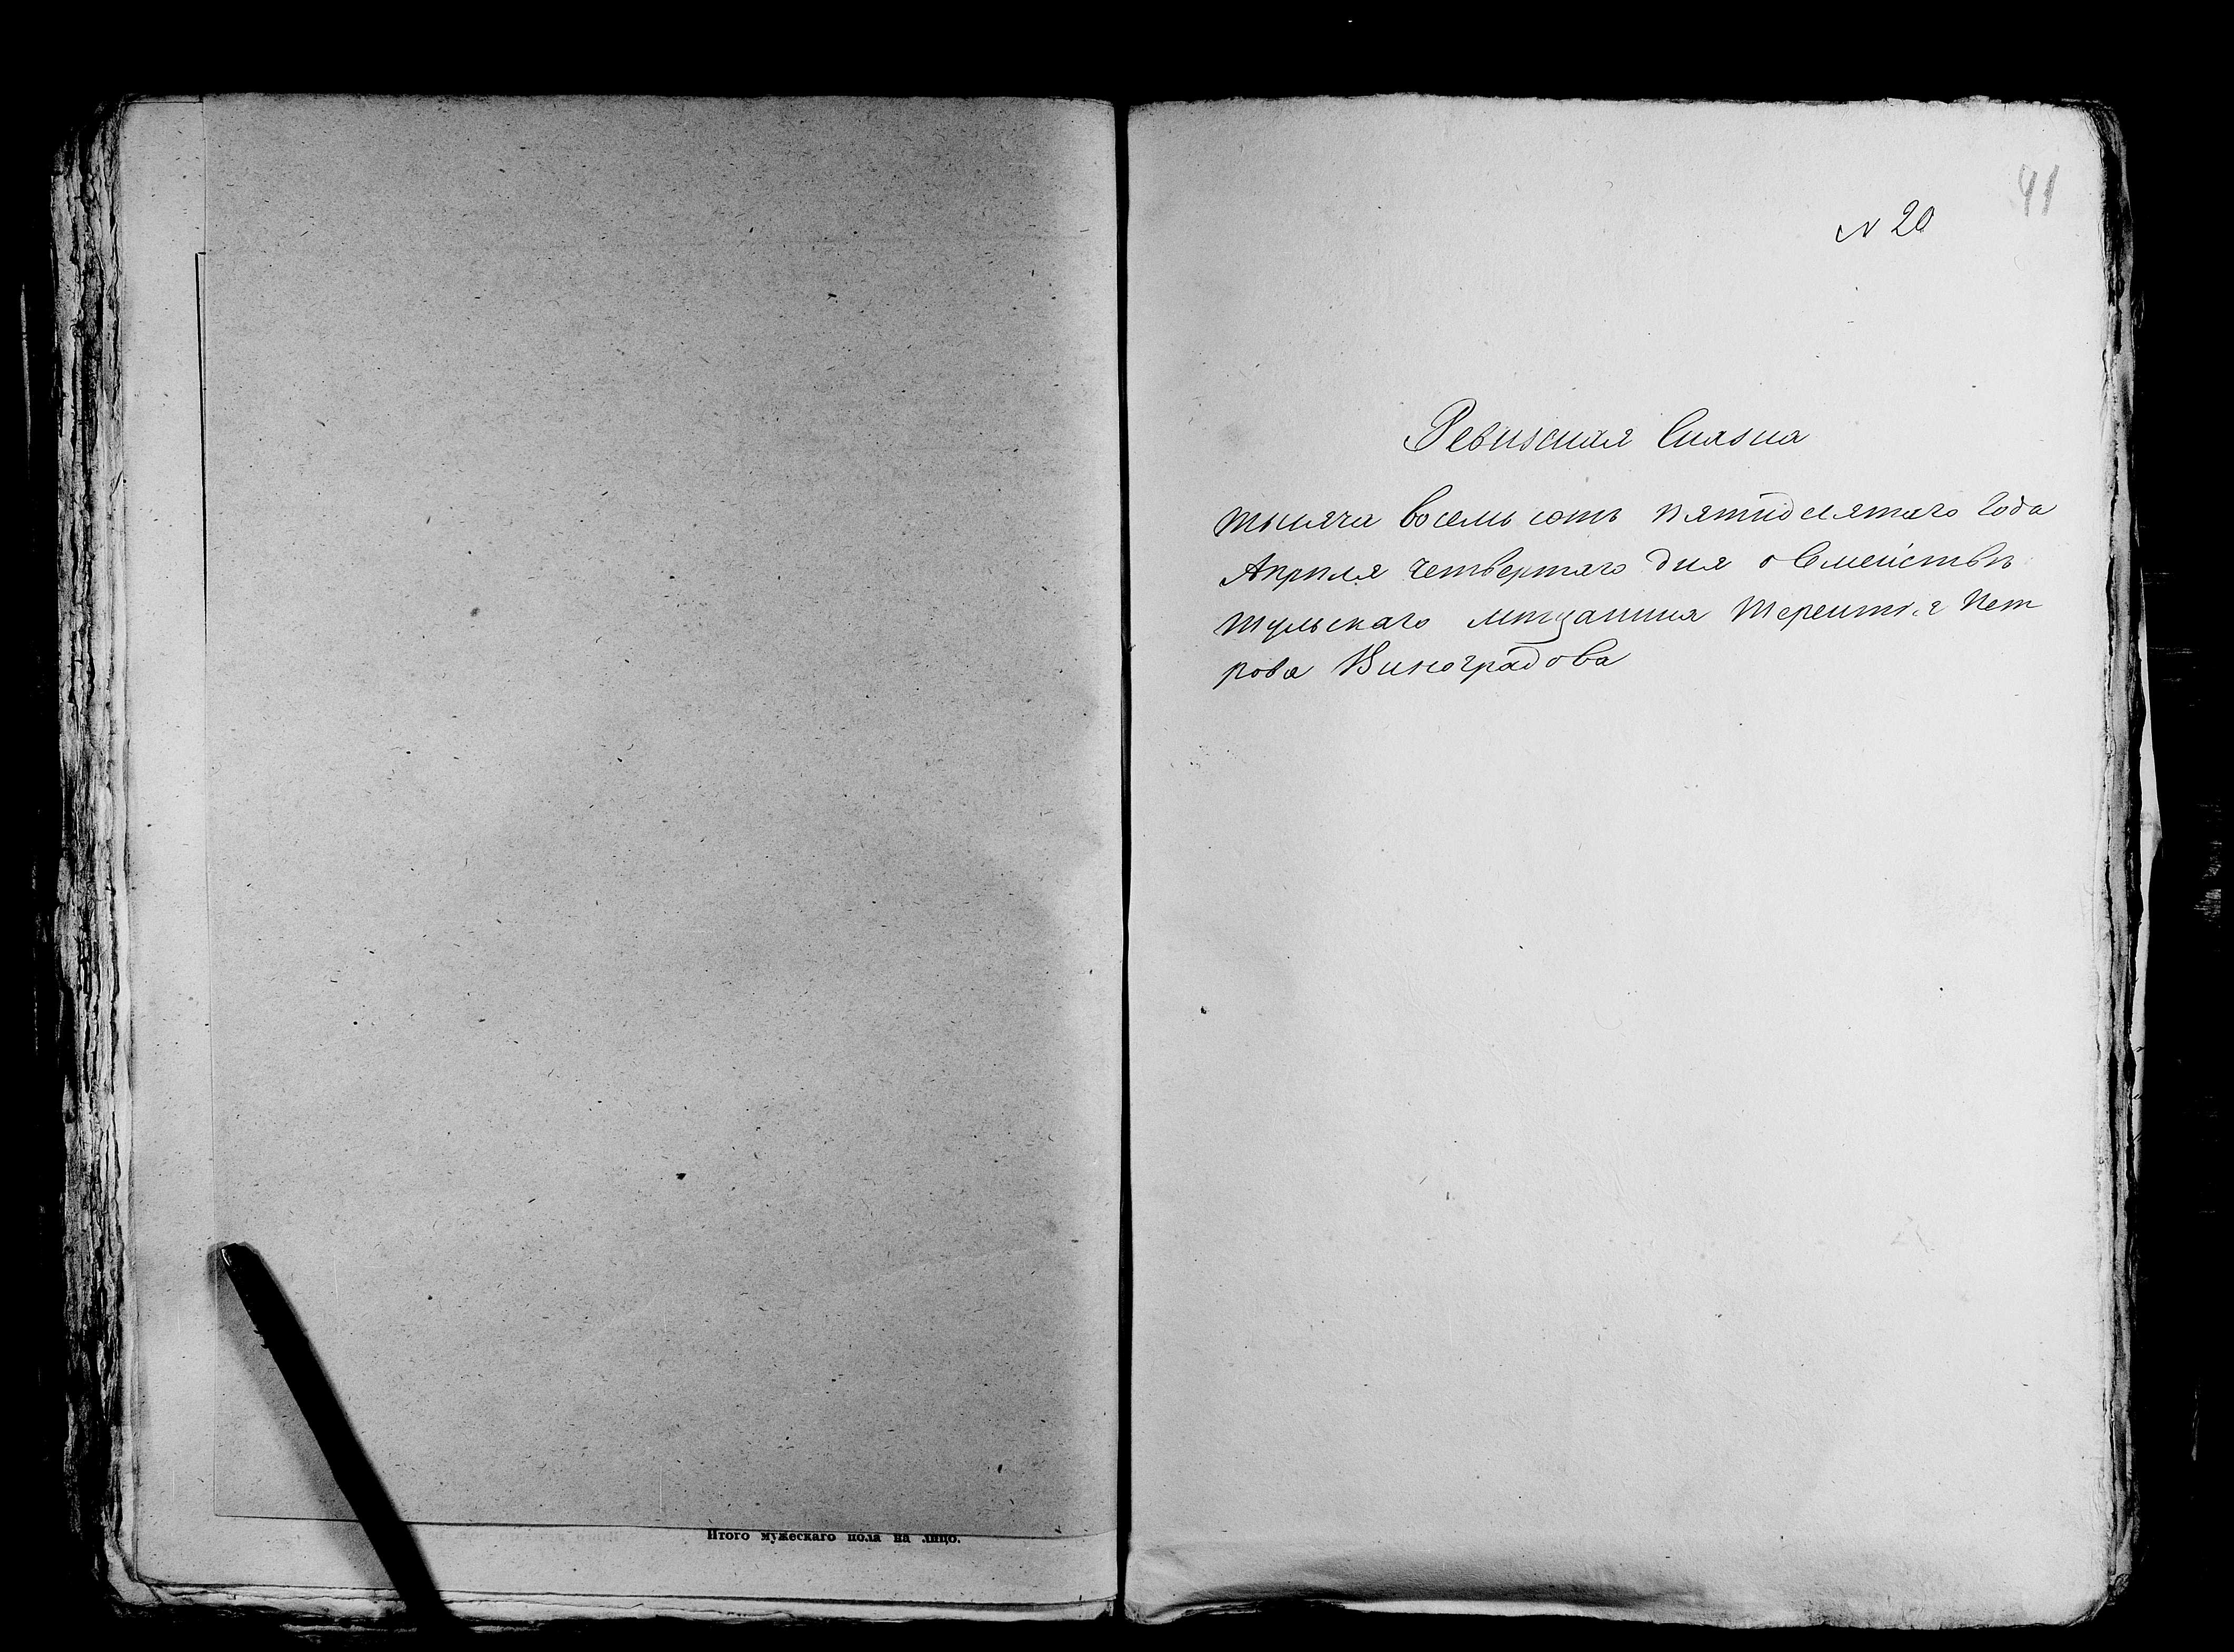 Итого мужескаго пола на лицо.
41
N 20
Ревизская Сказка
тысяча восемь сотъ пятидесятаго Года
Апреля четвертаго дня о Семействѣ
тульскаго мещанина Терентия Пет
рова Виноградова